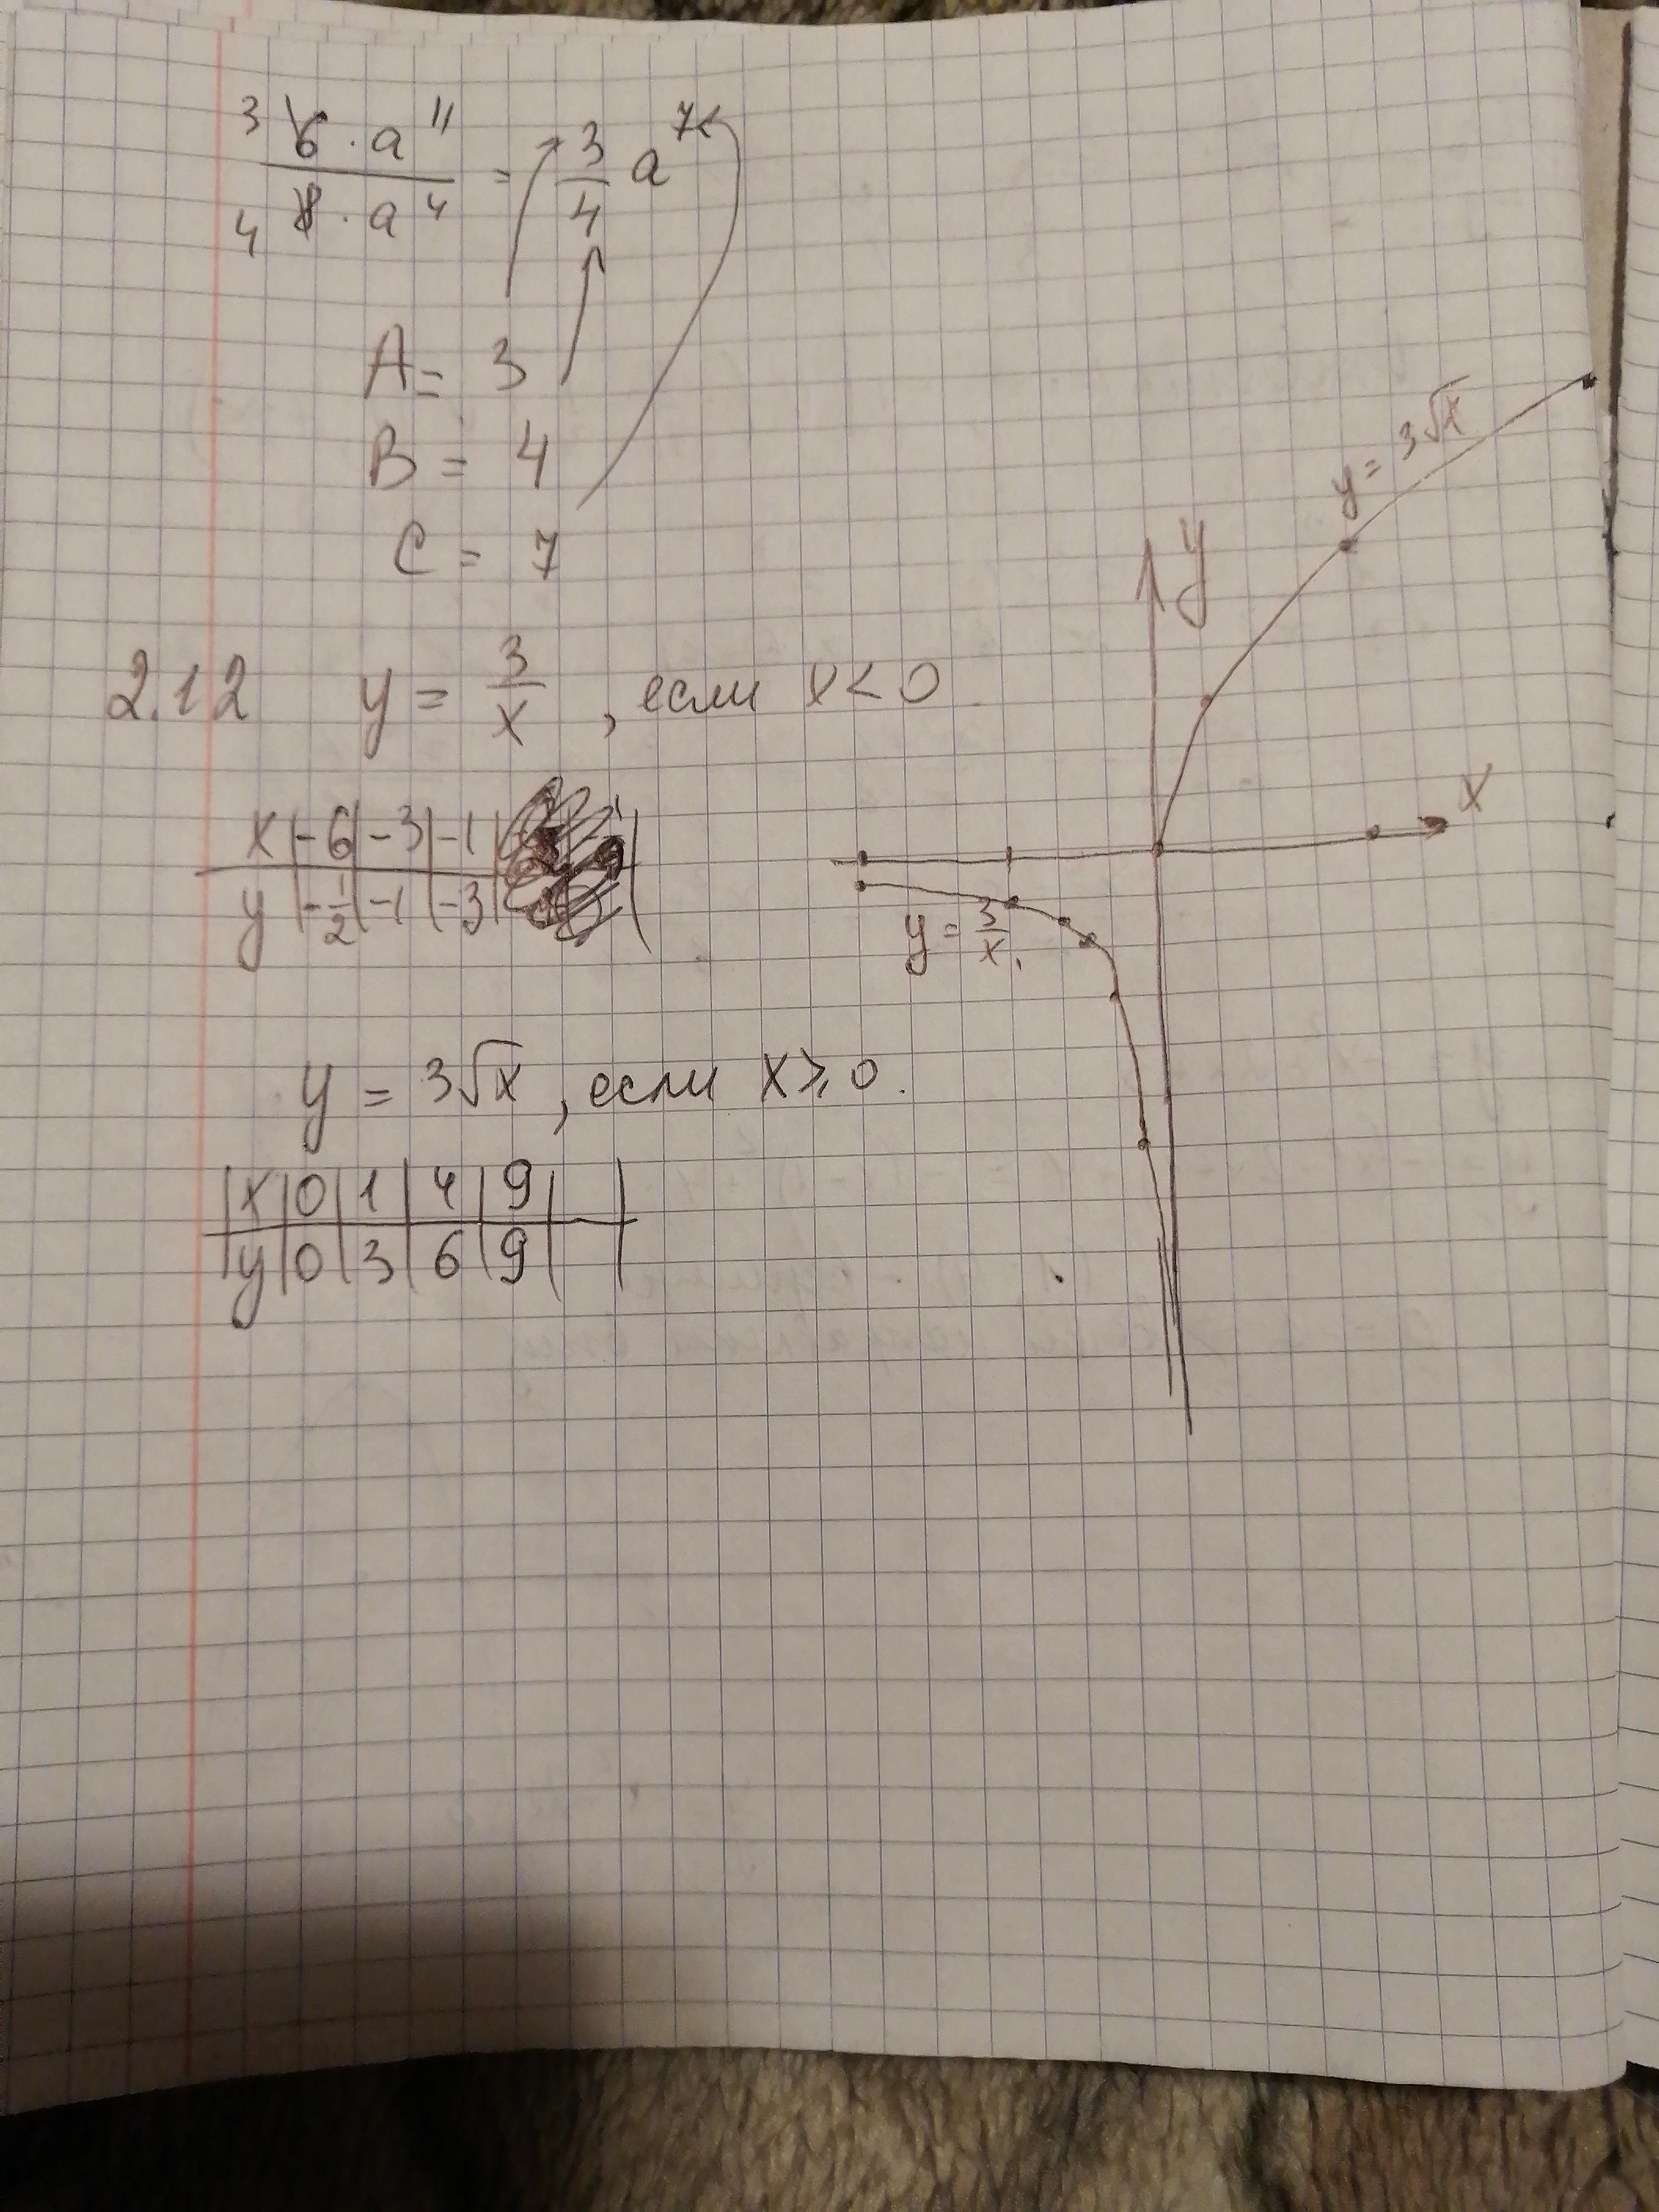 3 6 · a^11 / 4 8 · a^4 = 3/4 a^7
A = 3
B = 4
C = 7
2.12 y = 3/x , если x < 0
x | -6 | -3 | -1 |
y | -1/2 | -1 | -3 |
y = 3√x , если x ⩾ 0.
| x | 0 | 1 | 4 | 9 |
| y | 0 | 3 | 6 | 9 |
y = 3√x
y
x
y = 3/x